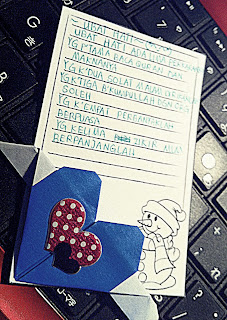 UBAT HATI
UBAT HATI ADA LIMA PERKARA
YG P'TAMA BACA QURAN DAN
MAKNANYA
YG K'DUA SOLAT MALAM
YG K'TIGA B'KUMPULLAH DGN ORG
SOLEH
YG K'EMPAT PERBANYAKLAH
BERPUASA
YG K'ELIMA ZIKIR MALAM
BERPANJANGLAH